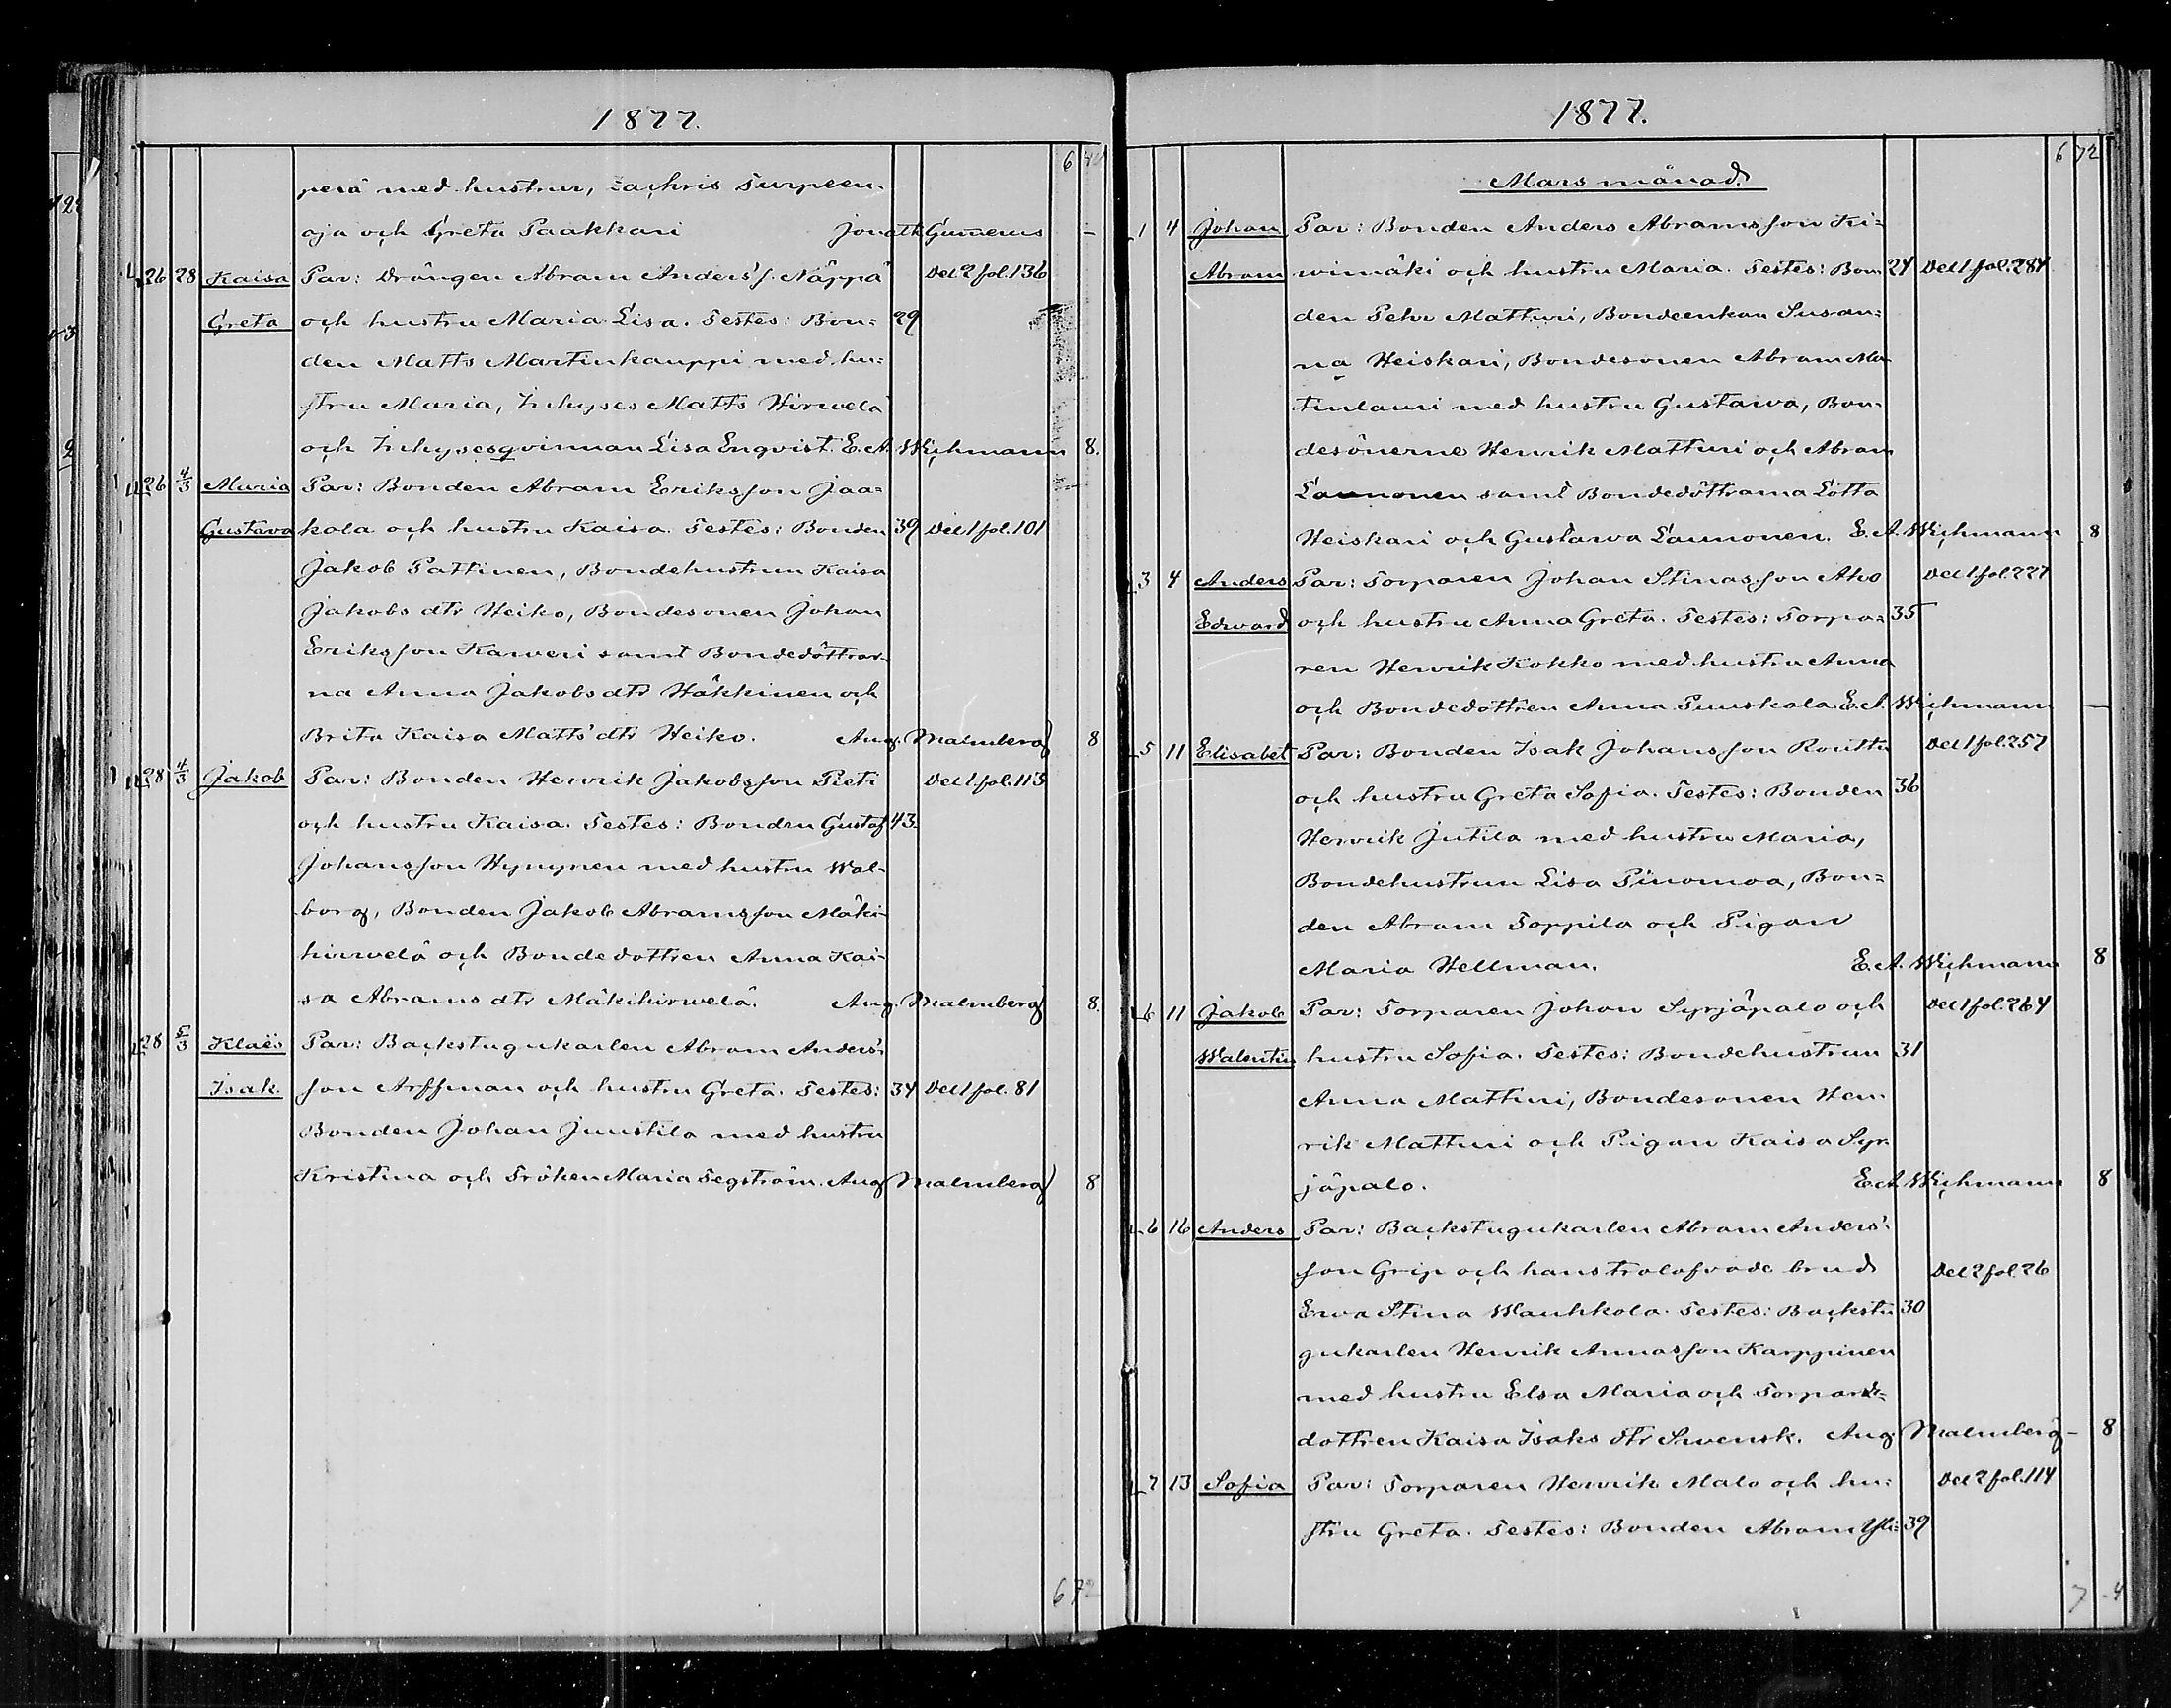 1877.
6 42
perä med hustrur, Zachris Turpeen-
oja och Greta Paakkari Jonath Gumerus -
26 28 Kaisa Par: Drängen Abram Anders's. Näppä Del 2 fol. 136
Greta och hustru Maria Lisa. Testes: Bon= 29
den Matts Martinkauppi med hu=
stru Maria, Inhyses Matts Hirvelä
och Inhysesqvinnan Lisa Enqvist. E. A. Wichmann 8.
26 4/3 Maria Par: Bonden Abram Eriksson Jaa=
Gustava kola och hustru Kaisa. Testes: Bonden 39 Del 1 fol. 101
Jakob Pattinen, Bondehustrun Kaisa
Jakobs dtr Heiko, Bondesonen Johan
Eriksson Karveri samt Bondedöttrar-
na Anna Jakobs dtr Häkkinen och
Brita Kaisa Matts' dtr Heiko. Aug. Malmberg 8
28 4/3 Jakob Par: Bonden Henrik Jakobsson Pieti Del 1 fol. 113
och hustru Kaisa. Testes: Bonden Gustaf 43.
Johansson Hynynen med hustru Wal-
borg, Bonden Jakob Abramsson Mäki-
hirvelä och Bondedottren Anna Kai-
sa Abrams dtr Mäkihirvelä. Aug. Malmberg 8.
28 5/3 Klaës Par: Backstugukarlen Abram Anders'-
Isak. son Arffman och hustru Greta. Testes: 34 Del 1 fol. 81
Bonden Johan Juustila med hustru
Kristina och Fröken Maria Segström. Aug Malmberg 8
672
1877.
6 72
Mars månad.
1 4 Johan Par: Bonden Anders Abramsson Ki=
Abram winmäki och hustru Maria. Testes: Bon- 24 Del 1 fol. 284
den Pehr Matturi, Bondeenkan Susan=
na Heiskari, Bondesonen Abram Ma-
tinlauri med hustru Gustava, Bon-
desönerne Henrik Matturi och Abram
Launonen samt Bondedöttrarna Lotta
Heiskari och Gustava Launonen. E. A. Wichmann 8
3 4 Anders Par: Torparen Johan Stinasson Aho Del 1 fol. 227
Edward och hustru Anna Greta. Testes: Torpa= 35
ren Henrik Kokko med hustru Anna
och Bondedottren Anna Puuskala. E. A. Wichmann -
5 11 Elisabet Par: Bonden Isak Johansson Routtu Del 1 fol. 257
och hustru Greta Sofia. Testes: Bonden 36
Henrik Jutila med hustru Maria,
Bondehustrun Lisa Pinomoa, Bon=
den Abram Toppila och Pigan
Maria Hellman. E. A. Wichmann 8
6 11 Jakob Par: Torparen Johan Syrjäpalo och Del 1 fol. 264
Walentin hustru Sofia. Testes: Bondehustrun 31
Anna Matturi, Bondesonen Hen-
rik Matturi och Pigan Kaisa Syr-
jäpalo. E. A. Wichmann 8
6 16 Anders Par: Backstugukarlen Abram Anders'-
son Grip och hans trolofvade brud Del 2 fol. 26
Eva Stina Wauhkola. Testes: Backstu 30
gukarlen Henrik Annasson Karppinen
med hustru Elsa Maria och Torpare=
dottren Kaisa Isaks dtr Svensk. Aug. Malmberg - 8
7 13 Sofia Par: Torparen Henrik Malo och hu= Del 2 fol. 114
stru Greta. Testes: Bonden Abram Yli= 39
7 4